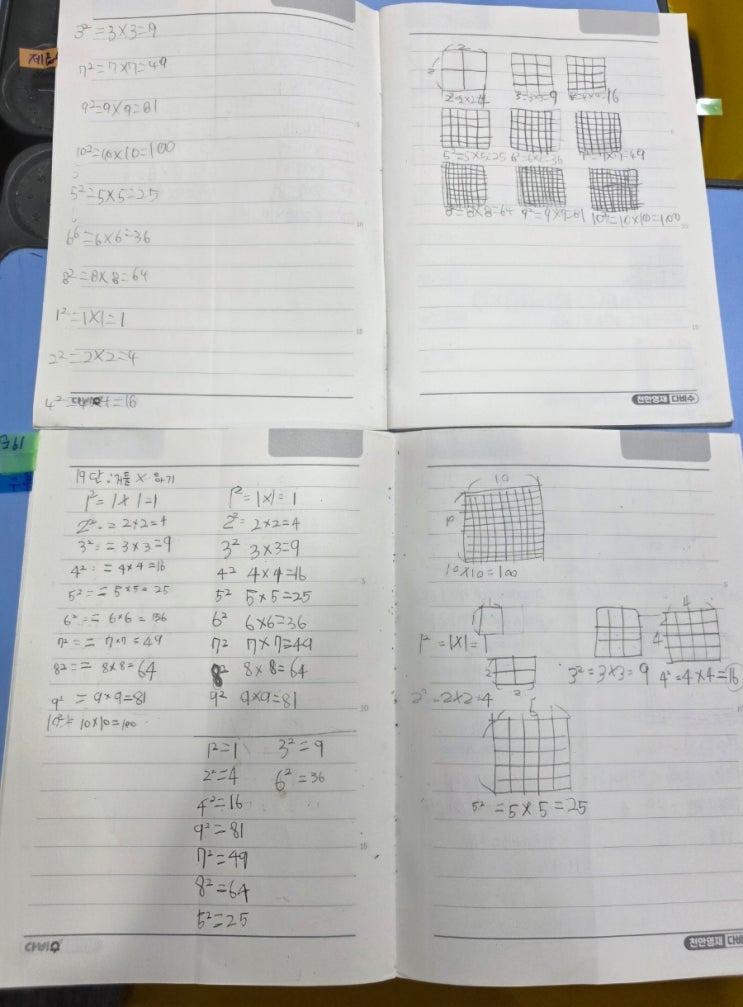 제출
3²=3×3=9
7²=7×7=49
9²=9×9=81
10²=10×10=100
5²=5×5=25
6⁶=6×6=36
8²=8×8=64
1²=1×1=1
2²=2×2=4
4²=4×4=16
다비수
2
2
2=2×2=4 3=3×3=9 4=4×4=16
5²=5×5=25 6²=6×6=36 7²=7×7=49
8²=8×8=64 9²=9×9=81 10²=10×10=100
천안영재 다비수
19단
1²=1×1=1
2²=2×2=4
3²==3×3=9
4²==4×4=16
5²==5×5=25
6²==6×6=36
7²==7×7=49
8²==8×8=64
9²=9×9=81
10²=10×10=100
1²=1×1=1
2²=2×2=4
3² 3×3=9
4² 4×4=16
5² 5×5=25
6² 6×6=36
7² 7×7=49
8² 8×8=64
9² 9×9=81
1²=1 3²=9
2²=4 6²=36
4²=16
9²=81
7²=49
8²=64
5²=25
다비수
10
10
10×10=100
1
1²=1×1=1
2
2
2²=2×2=4
3²=3×3=9
4
4
4²=4×4=16
5
5²=5×5=25
천안영재 다비